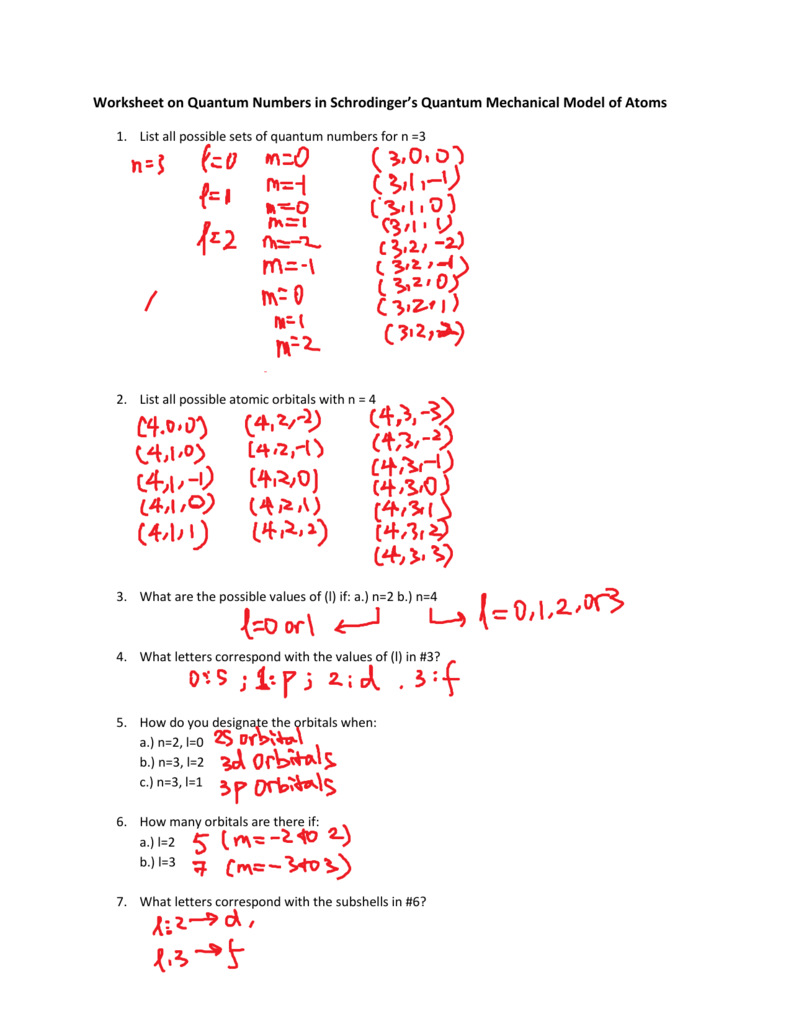 Worksheet on Quantum Numbers in Schrodinger's Quantum Mechanical Model of Atoms
1. List all possible sets of quantum numbers for n =3
n=3 l=0 m=0 (3,0,0)
m=-1 (3,1,-1)
l=1 m=0 (3,1,0)
m=1 (3,1,1)
l=2 m=-2 (3,2,-2)
m=-1 (3,2,-1)
m=0 (3,2,0)
m=1 (3,2,1)
m=2 (3,2,2)
2. List all possible atomic orbitals with n = 4
(4,0,0) (4,2,-2) (4,3,-3)
(4,1,0) (4,2,-1) (4,3,-2)
(4,1,-1) (4,2,0) (4,3,-1)
(4,1,0) (4,2,1) (4,3,0)
(4,1,1) (4,2,2) (4,3,1)
(4,3,2)
(4,3,3)
3. What are the possible values of (l) if: a.) n=2 b.) n=4
l=0 or 1 l=0,1,2,or3
4. What letters correspond with the values of (l) in #3?
0:s ; 1:p ; 2:d . 3:f
5. How do you designate the orbitals when:
a.) n=2, l=0 2S orbital
b.) n=3, l=2 3d orbitals
c.) n=3, l=1 3p orbitals
6. How many orbitals are there if:
a.) l=2 5 (m=-2 to 2)
b.) l=3 7 (m=-3 to 3)
7. What letters correspond with the subshells in #6?
l=2→d,
l=3→f